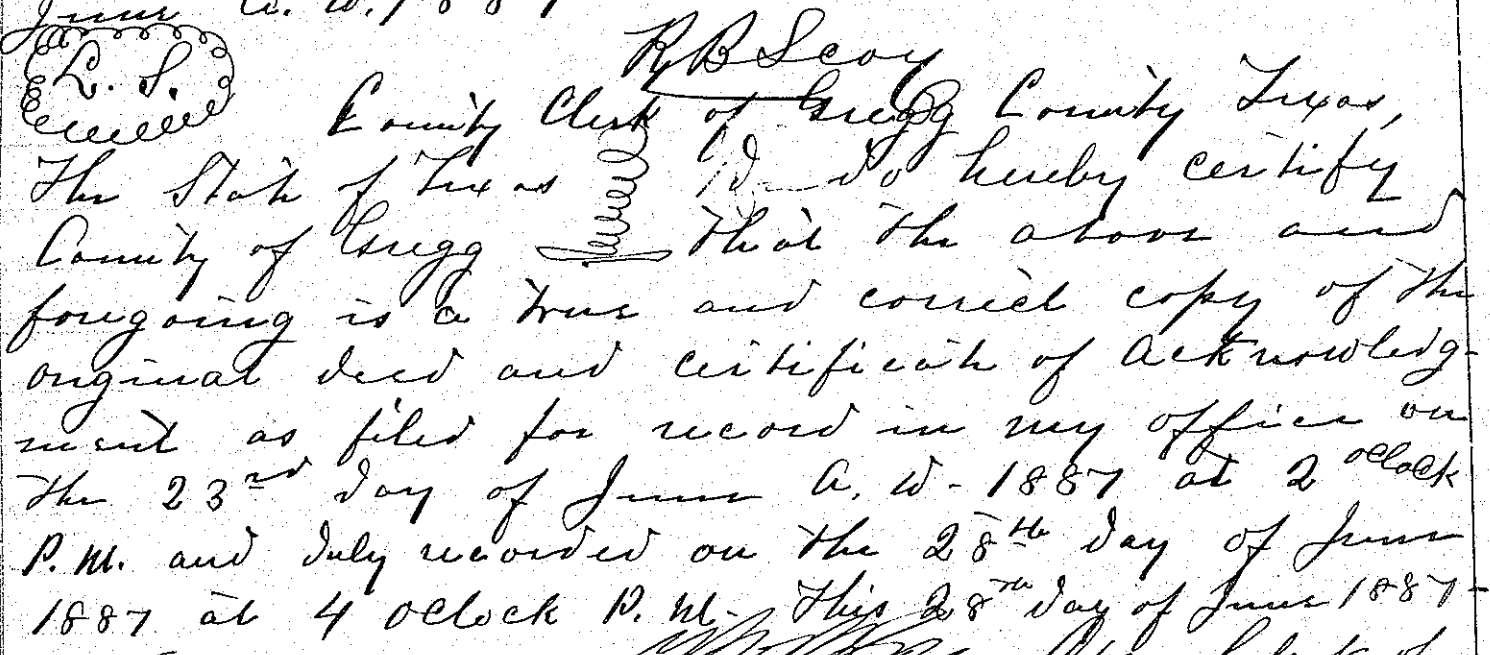 June A. D. 1887
L. S.
R B Scoy
County Clerk of Gregg County Texas,
The State of Texas do hereby certify
County of Gregg that the above and
foregoing is a true and correct copy of the
original deed and certificate of acknowledg-
ment as filed for record in my office on
the 23rd day of June A. D - 1887 at 2 oclock
P. M. and duly recorded on the 28th day of June
1887 at 4 oclock P. M - This 28th day of June 1887 -
Clerk of